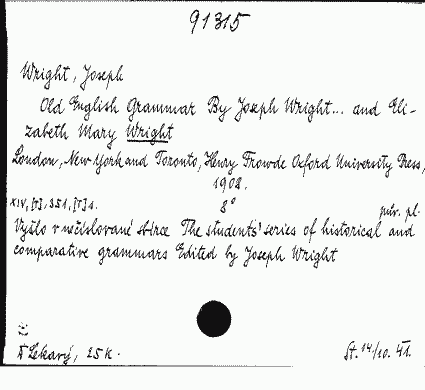 91315
Wright, Joseph
Old English Grammar By Joseph Wright... and Eli-
zabeth Mary Wright
London, New York and Toronto, Henry Frowde Oxford University Press,
1908.
XIV, [I], 351, [I] s. 8° pův. pl.
Vyšlo v nečíslované sbírce The students' series of historical and
comparative grammars Edited by Joseph Wright
25 K.
St. 14/10. 41.